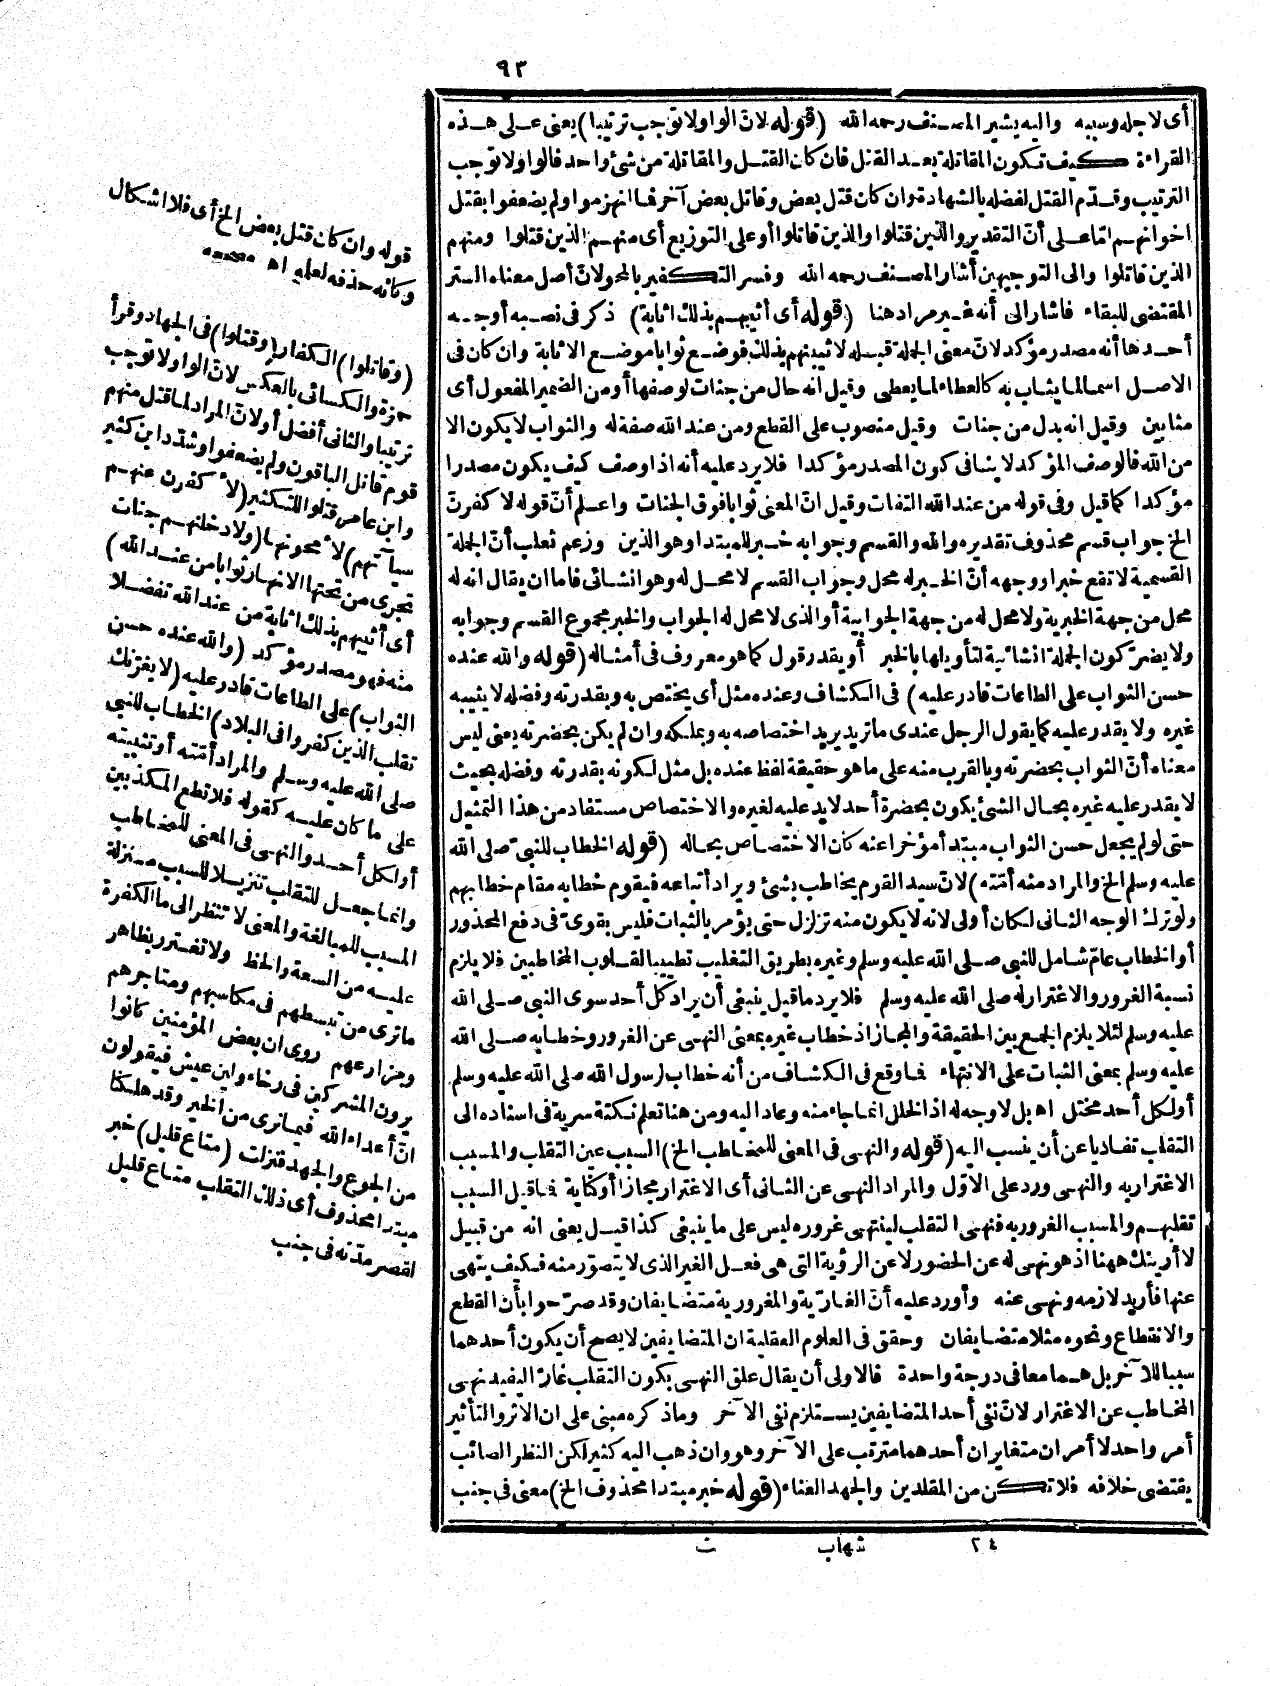 ٩٣
أى لاجله وسببه واليه يشير المصنف رحمه الله (قوله لانّ الواو لا توجب ترتيبا) يعنى على هذه
القراءة كيف تكون المقاتلة بعد القتل فان كان القتل والمقاتلة من شئ واحد فالواو لا توجب
الترتيب وقدّم القتل لفضله بالشهادة وان كان قتل بعض وقاتل بعض آخر فما انهزموا ولم يضعفوا بقتل
اخوانهم امّا على أنّ التقدير والذين قتلوا والذين قاتلوا أو على التوزيع أى منهم الذين قتلوا ومنهم
الذين قاتلوا والى التوجيهين أشار المصنف رحمه الله وفسر التكفير بالمحو لانّ أصل معناه الستر
المقتضى للبقاء فاشار الى أنه غير مراد هنا (قوله أى أثيبهم بذلك اثابة) ذكر فى نصبه أوجه
أحدها أنه مصدر مؤكد لانّ معنى الجملة قبله لاثيبنهم بذلك فوضع ثوابا موضع الاثابة وان كان فى
الاصل اسما لما يثاب به كالعطاء لما يعطى وقيل انه حال من جنات لوصفها أو من الضمير المفعول أى
مثابين وقيل انه بدل من جنات وقيل منصوب على القطع ومن عند الله صفة له والثواب لا يكون الا
من الله فالوصف المؤكد لا ينافى كون المصدر مؤكدا فلا يرد عليه أنه اذا وصف كيف يكون مصدرا
مؤكدا كما قيل وفى قوله من عند الله التفات وقيل انّ المعنى ثوابا فوق الجنات واعلم أنّ قوله لاكفرنّ
الخ جواب قسم محذوف تقديره والله والقسم وجوابه خبر للمبتدا وهو الذين وزعم ثعلب أنّ الجملة
القسمية لا تقع خبرا ووجهه أنّ الخبر له محل وجواب القسم لا محل له وهو انشائى فاما ان يقال انه له
محل من جهة الخبرية ولا محل له من جهة الجوابية أو الذى لا محل له الجواب والخبر مجموع القسم وجوابه
ولا يضرّ كون الجملة انشائية لتأويلها بالخبر أو يقدر قول كما هو معروف فى أمثاله (قوله والله عنده
حسن الثواب على الطاعات قادر عليه) فى الكشاف وعنده مثل أى يختص به وبقدرته وفضله لا يثيبه
غيره ولا يقدر عليه كما يقول الرجل عندى ما تريد يريد اختصاصه به وبملكه وان لم يكن بحضرته يعنى ليس
معناه أنّ الثواب بحضرته وبالقرب منه على ما هو حقيقة لفظ عنده بل مثل لكونه بقدرته وفضله بحيث
لا يقدر عليه غيره بحال الشئ يكون بحضرة أحد لا يد عليه لغيره والاختصاص مستفاد من هذا التمثيل
حتى لو لم يجعل حسن الثواب مبتدأ مؤخرا عنه كان الاختصاص بحاله (قوله الخطاب للنبىّ صلى الله
عليه وسلم الخ والمراد منه أمّته) لانّ سيد القوم يخاطب بشئ ويراد أتباعه فيقوم خطابه مقام خطابهم
ولو ترك الوجه الثانى لكان أولى لانه لا يكون منه تزلزل حتى يؤمر بالثبات فليس بقوىّ فى دفع المحذور
أو الخطاب عامّ شامل للنبى صلى الله عليه وسلم وغيره بطريق التغليب تطييبا لقلوب المخاطبين فلا يلزم
نسبة الغرور والاغترار له صلى الله عليه وسلم فلا يرد ما قيل ينبغى أن يراد كل أحد سوى النبى صلى الله
عليه وسلم لئلا يلزم الجمع بين الحقيقة والمجاز اذ خطاب غيره بمعنى النهى عن الغرور وخطابه صلى الله
عليه وسلم بمعنى الثبات على الانتهاء فما وقع فى الكشاف من أنه خطاب لرسول الله صلى الله عليه وسلم
أو لكل أحد مختل اه بل لا وجه له اذ الخلل انما جاء منه وعاد اليه ومن هنا تعلم نكتة سرية فى اسناده الى
التقلب تفاديا عن أن ينسب اليه (قوله والنهى فى المعنى للمخاطب الخ) السبب عين التقلب والمسبب
الاغترار به والنهى ورد على الاوّل والمراد النهى عن الثانى أى الاغترار مجازا أو كناية فما قيل السبب
تقلبهم والمسبب الغرور به فنهى التقلب لينتهى غروره ليس على ما ينبغى كذا قيل يعنى انه من قبيل
لا أرينك ههنا اذ هو نهى له عن الحضور لا عن الرؤية التى هى فعل الغير الذى لا يتصوّر منه فكيف ينهى
عنها فأريد لازمه ونهى عنه وأورد عليه أنّ الغارّية والمغرورية متضايفان وقد صرّحوا بأن القطع
والانقطاع ونحوه مثلا متضايفان وحقق فى العلوم العقلية ان المتضايفين لا يصح أن يكون أحدهما
سببا للآخر بل هما معا فى درجة واحدة فالاولى أن يقال علق النهى بكون التقلب غارّا ليفيد نهى
المخاطب عن الاغترار لانّ نفى أحد المتضايفين يستلزم نفى الآخر وما ذكره مبنى على ان الاثر والتأثير
أمر واحد لا أمران متغايران أحدهما مترتب على الآخر وهو وان ذهب اليه كثير لكن النظر الصائب
يقتضى خلافه فلا تكن من المقلدين والجهد العناء (قوله خبر مبتدا محذوف الخ) معنى فى جنب
قوله وان كان قتل بعض الخ أى فلا اشكال
وكانه حذفه لعلمه اه مصححه
(وقاتلوا) الكفار (وقتلوا) فى الجهاد وقرأ
حمزة والكسائى بالعكس لانّ الواو لا توجب
ترتيبا والثانى أفضل أو لانّ المراد لما قتل منهم
قوم قاتل الباقون ولم يضعفوا وشدّد ابن كثير
وابن عامر قتلوا للتكثير (لاكفرن عنهم
سيآتهم) لامحونها (ولادخلنهم جنات
تجرى من تحتها الانهار ثوابا من عند الله)
أى أثيبهم بذلك اثابة من عند الله تفضلا
منه فهو مصدر مؤكد (والله عنده حسن
الثواب) على الطاعات قادر عليه (لا يغرّنك
تقلب الذين كفروا فى البلاد) الخطاب للنبى
صلى الله عليه وسلم والمراد أمّته أو تثبيته
على ما كان عليه كقوله فلا تطع المكذبين
أو لكل أحد والنهى فى المعنى للمخاطب
وانما جعل للتقلب تنزيلا للسبب منزلة
المسبب للمبالغة والمعنى لا تنظر الى ما الكفرة
عليه من السعة والحظ ولا تغترر بظاهر
ما ترى من تبسطهم فى مكاسبهم ومتاجرهم
ومزارعهم روى ان بعض المؤمنين كانوا
يرون المشركين فى رخاء ولين عيش فيقولون
انّ أعداء الله فيما نرى من الخير وقد هلكنا
من الجوع والجهد فنزلت (متاع قليل) خبر
مبتدا محذوف أى ذلك التقلب متاع قليل
لقصر مدّته فى جنب
٢٤ شهاب ث